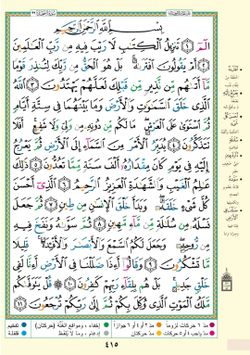 بِسْمِ ٱللَّهِ ٱلرَّحْمَٰنِ ٱلرَّحِيمِ
الٓمٓ ﴿١﴾ تَنزِيلُ ٱلْكِتَٰبِ لَا رَيْبَ فِيهِ مِن رَّبِّ ٱلْعَٰلَمِينَ
﴿٢﴾ أَمْ يَقُولُونَ ٱفْتَرَىٰهُ بَلْ هُوَ ٱلْحَقُّ مِن رَّبِّكَ لِتُنذِرَ قَوْمًا
مَّآ أَتَىٰهُم مِّن نَّذِيرٍ مِّن قَبْلِكَ لَعَلَّهُمْ يَهْتَدُونَ ﴿٣﴾ ٱللَّهُ
ٱلَّذِى خَلَقَ ٱلسَّمَٰوَٰتِ وَٱلْأَرْضَ وَمَا بَيْنَهُمَا فِى سِتَّةِ أَيَّامٍ
ثُمَّ ٱسْتَوَىٰ عَلَى ٱلْعَرْشِ مَا لَكُم مِّن دُونِهِۦ مِن وَلِىٍّ وَلَا شَفِيعٍ أَفَلَا
تَتَذَكَّرُونَ ﴿٤﴾ يُدَبِّرُ ٱلْأَمْرَ مِنَ ٱلسَّمَآءِ إِلَى ٱلْأَرْضِ ثُمَّ يَعْرُجُ
إِلَيْهِ فِى يَوْمٍ كَانَ مِقْدَارُهُۥٓ أَلْفَ سَنَةٍ مِّمَّا تَعُدُّونَ ﴿٥﴾ ذَٰلِكَ
عَٰلِمُ ٱلْغَيْبِ وَٱلشَّهَٰدَةِ ٱلْعَزِيزُ ٱلرَّحِيمُ ﴿٦﴾ ٱلَّذِىٓ أَحْسَنَ
كُلَّ شَىْءٍ خَلَقَهُۥ وَبَدَأَ خَلْقَ ٱلْإِنسَٰنِ مِن طِينٍ ﴿٧﴾ ثُمَّ جَعَلَ
نَسْلَهُۥ مِن سُلَٰلَةٍ مِّن مَّآءٍ مَّهِينٍ ﴿٨﴾ ثُمَّ سَوَّىٰهُ وَنَفَخَ فِيهِ مِن
رُّوحِهِۦ وَجَعَلَ لَكُمُ ٱلسَّمْعَ وَٱلْأَبْصَٰرَ وَٱلْأَفْـِٔدَةَ قَلِيلًا
مَّا تَشْكُرُونَ ﴿٩﴾ وَقَالُوٓا۟ أَءِذَا ضَلَلْنَا فِى ٱلْأَرْضِ أَءِنَّا لَفِى
خَلْقٍ جَدِيدٍ بَلْ هُم بِلِقَآءِ رَبِّهِمْ كَٰفِرُونَ ﴿١٠﴾ قُلْ يَتَوَفَّىٰكُم
مَّلَكُ ٱلْمَوْتِ ٱلَّذِى وُكِّلَ بِكُمْ ثُمَّ إِلَىٰ رَبِّكُمْ تُرْجَعُونَ ﴿١١﴾
٤١٥